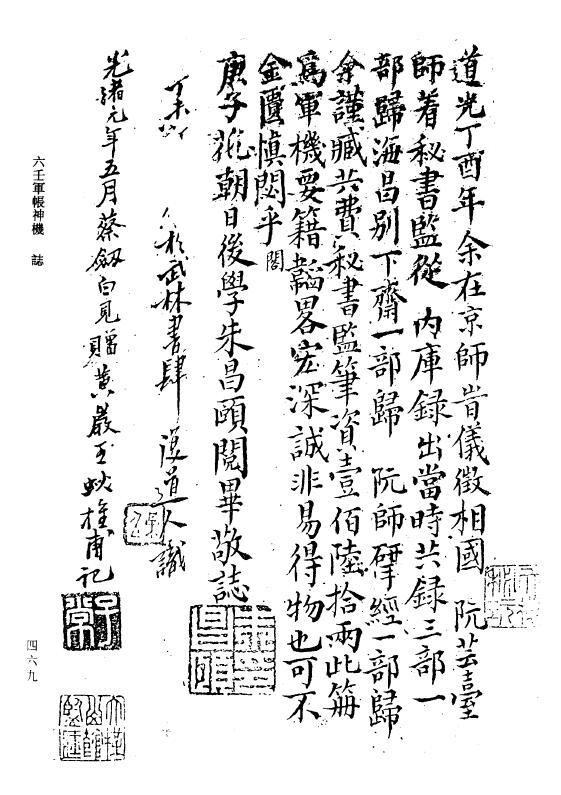 道光丁酉年余在京師旹儀徵相國 阮芸臺
師着秘書監從 內庫録出當時共録三部一
部歸海昌別下齋一部歸 阮師揅經一部歸
余謹臧共費秘書監筆資壹佰陸拾兩此冊
爲軍機要籍韜畧宏深誠非易得物也可不
金匱慎閟乎
閣
庚子花朝日後學朱昌頤閱畢敬誌
丁未 於武林書肆 道人識
光緒元年五月蔡劔白見贈黃巖王 甫記
子裳
六壬軍帳神機 誌
四六九